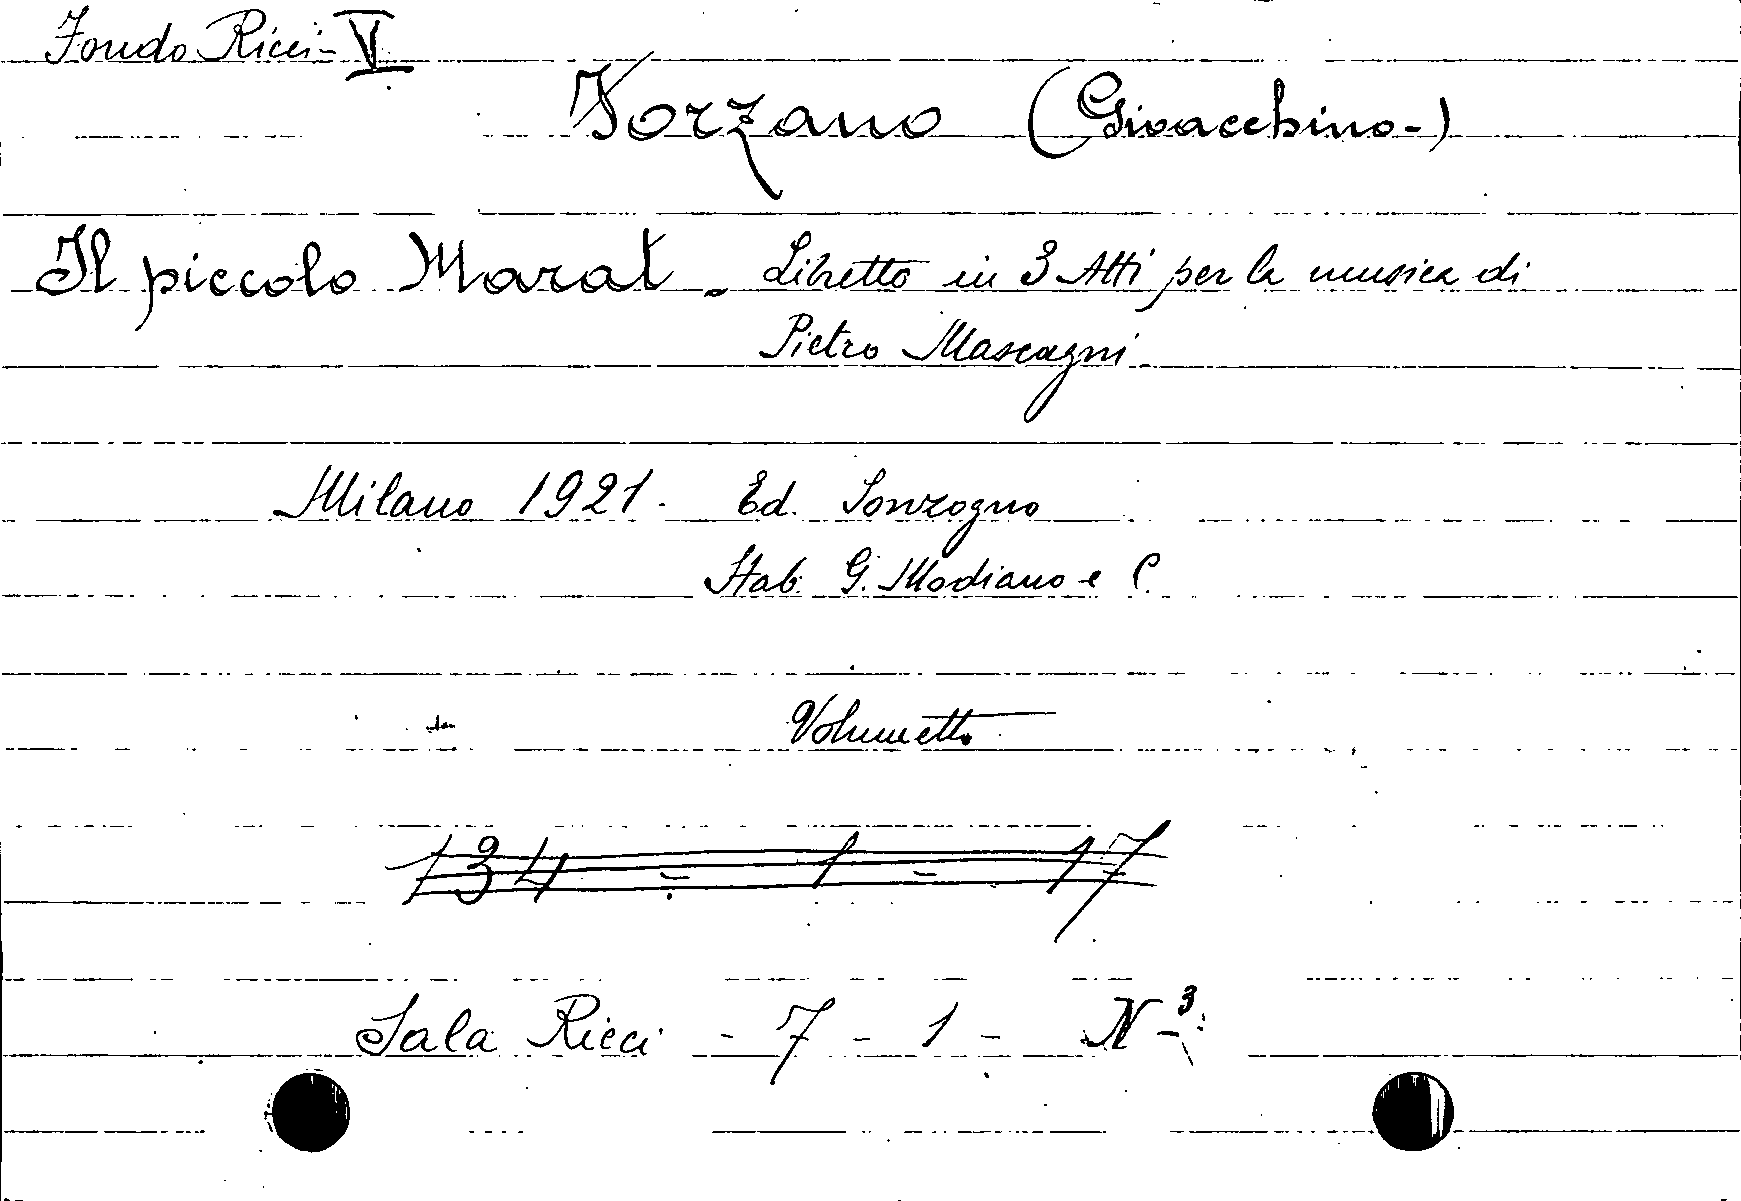 Fondo Ricci - V
Forzano (Giovacchino-)
Il piccolo Marat - Libretto in 3 Atti per la musica di
Pietro Mascagni
Milano 1921. Ed. Sonzogno
Stab. G. Modiano e C.
Volumetto
134 - 1 - 17
Sala Ricci - 7 - 1 - N 3